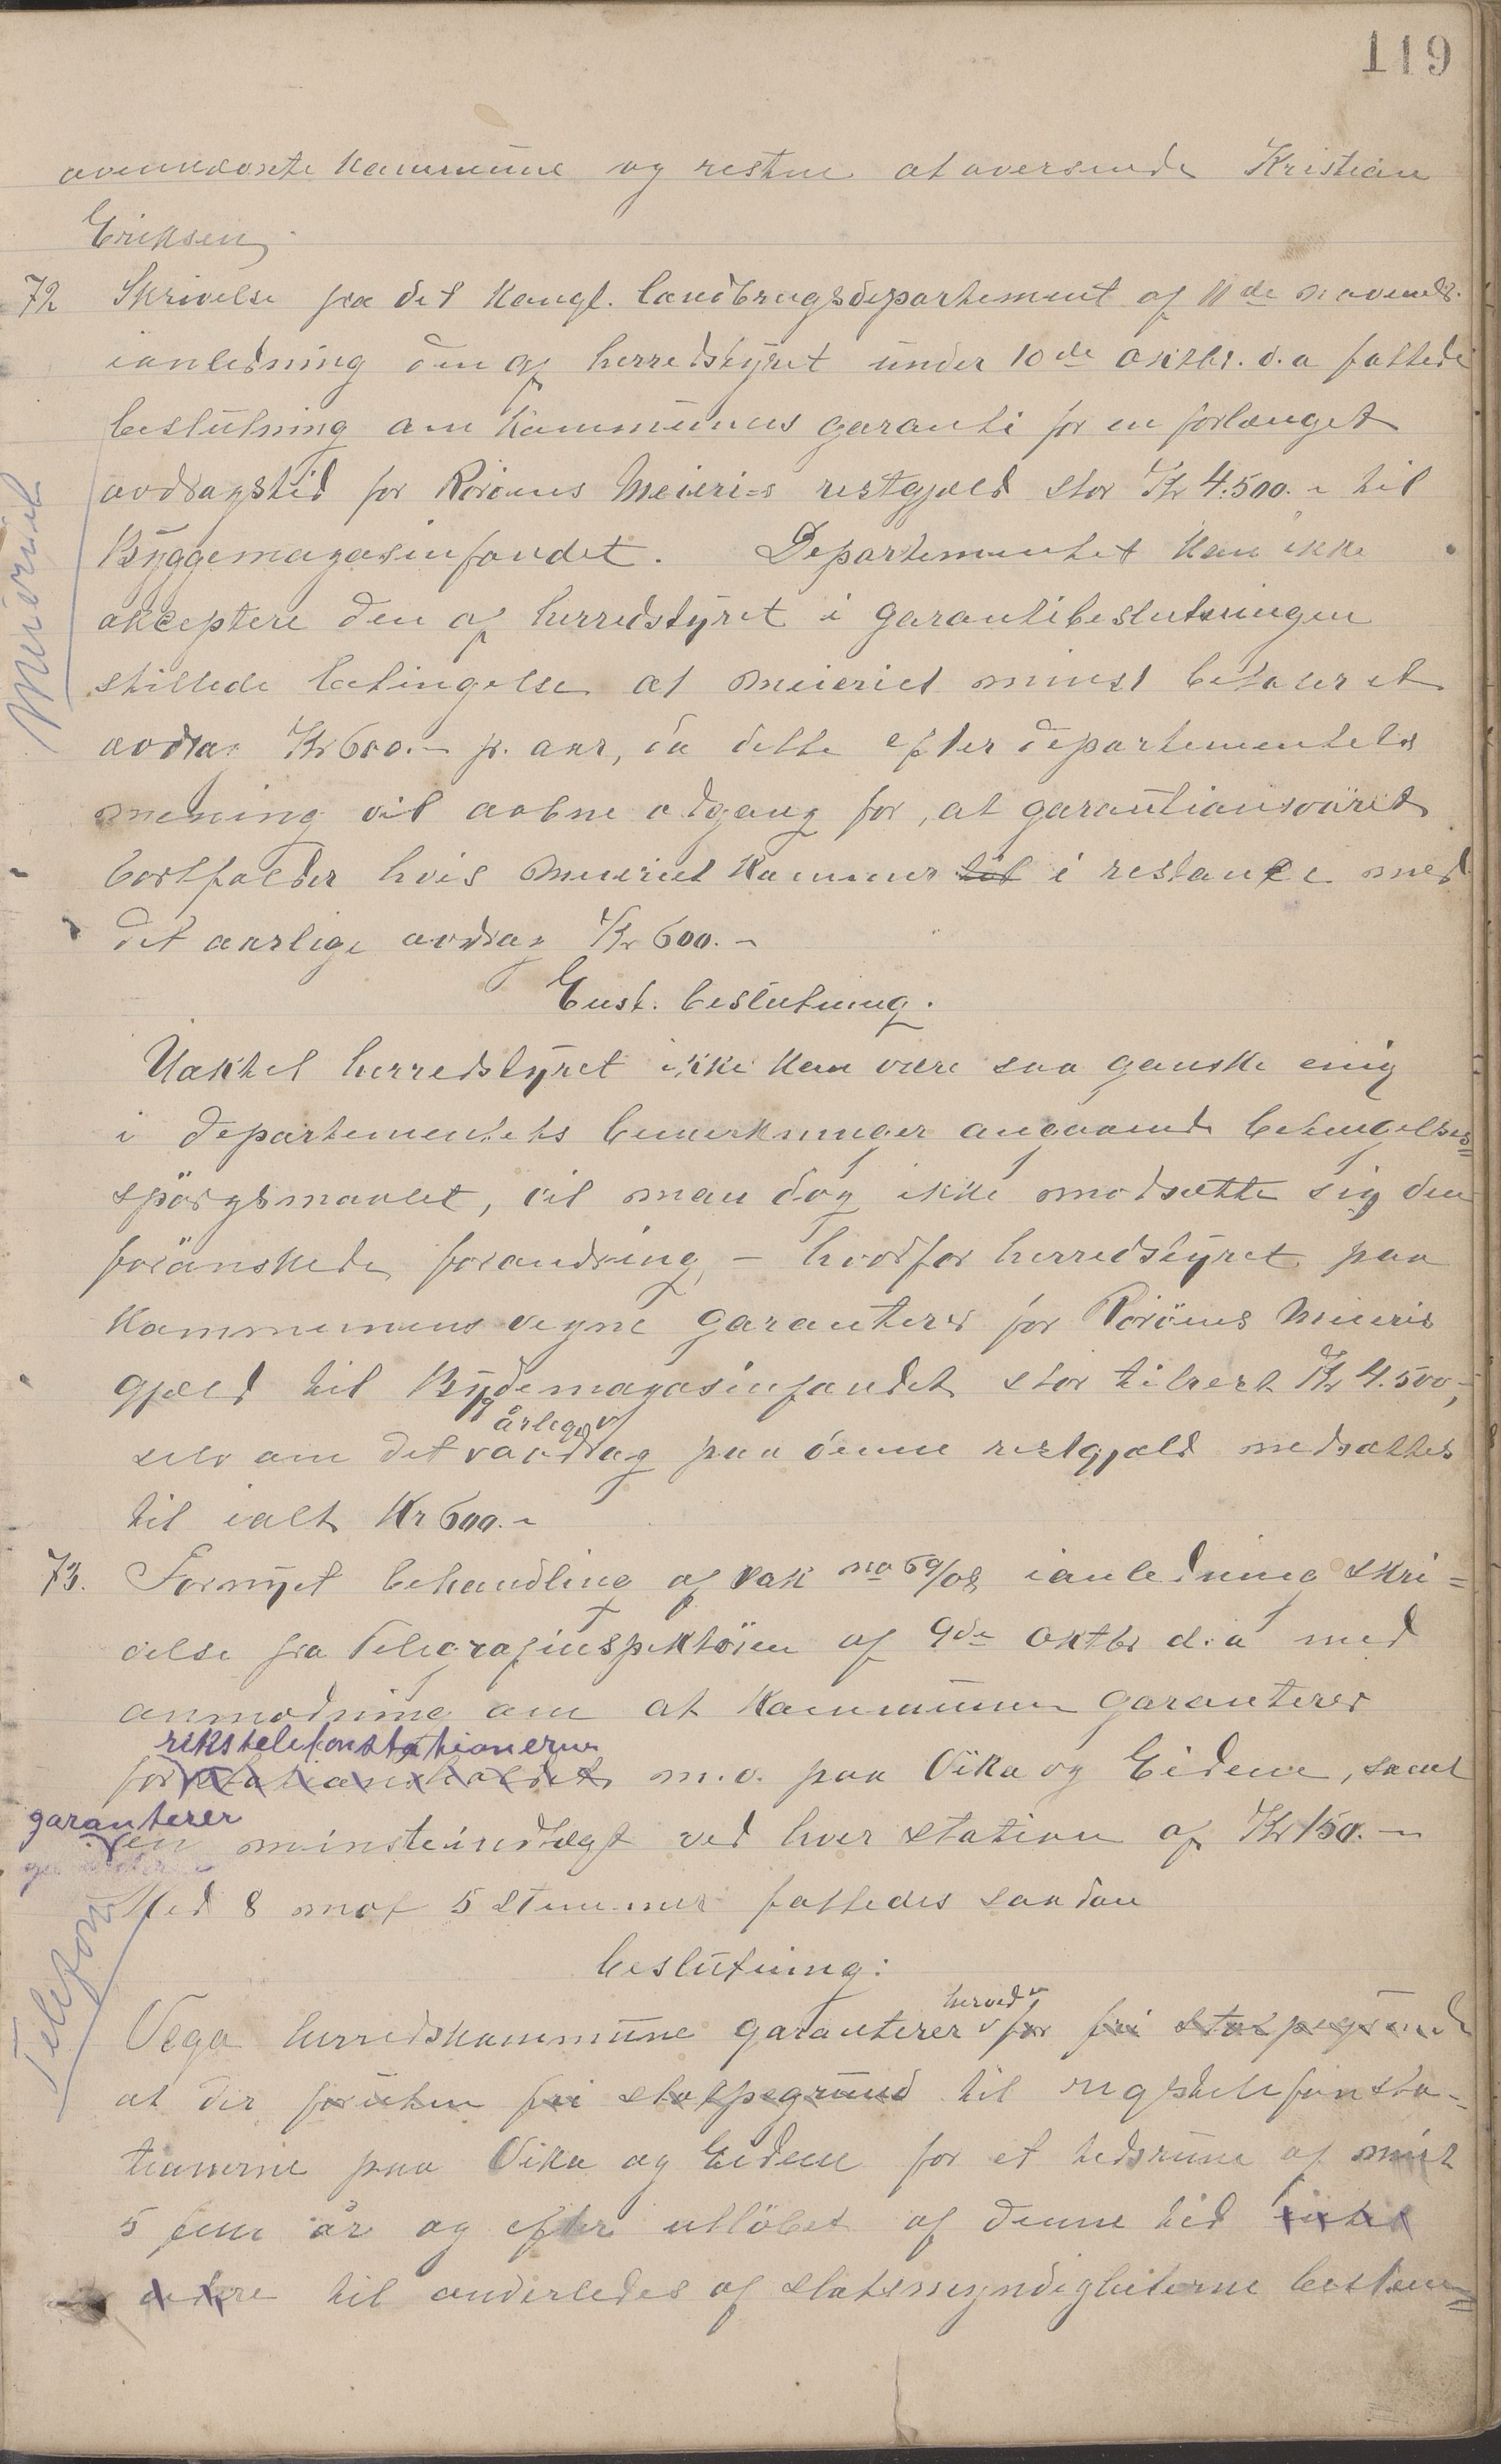 119
ovennævnte kommune og restene at oversende Kristian
Eriksen
72 Skrivelse fra det kongl. landbrugsdepartement af 11de novembr.
ianledning den af herredstyret under 10de oktbr. d.a fattede
beslutning om kommunens garanti for en forlænget
avdragstid for Röröens Meieri=s restgjæld stor Kr 4.500.- til
Byggemagasinfondet. Departementet kan ikke
akceptere den af herredstyret i garantibeslutningen
stillede betingelse at meieriet minst betaler et
avdrag Kr 600.- p. aar, da dette efter departementets
mening vil aabne adgang for, at garantiansvaret
bortfalder hvis meieriet kommer til i restance med
det aarlige avdrag Kr 600.-
Meieriet
Enst. beslutning.
Uaktet herredstyret ikke kan være saa ganske enig
i departementets bemerkninger angaaende betingelses=
spörgsmaalet, vil man dog ikke modsætte sig den
forönskede forandring, - hvorfor herredstyret paa
kommunens vegne garanterer for Röröens Meieris
gjæld til Bygdemagasinfondet stor tilrest Kr 4.500,-
årlige
selv om det avdrag paa denne restgjæld nedsættes
til ialt Kr 600.-
73. Fornyet behandling af sak no 69/08 ianledning skri=
velse fra Telegrafinspektören af 9de oktbr d.a med
anmodning om at kommunen garanterer
rikstelefonstationerne
for stationsholdet m.v. paa Vika og Eidem, samt
garanterer
en minsteindtægt ved hver station af Kr 150.-
Med 8 mot 5 stemmer fattedes saadan
Telefon
beslutning:
herved
Vega herredskommune garanterer for fri stolpegrund
at der foruten fri stolpegrund til rigstelefonsta-
tionerne paa Vika og Eidem for et tidsrum af minst
5 fem år og efter utlöbet af denne tid
til anderledes af statsmyndigheterne bestem=